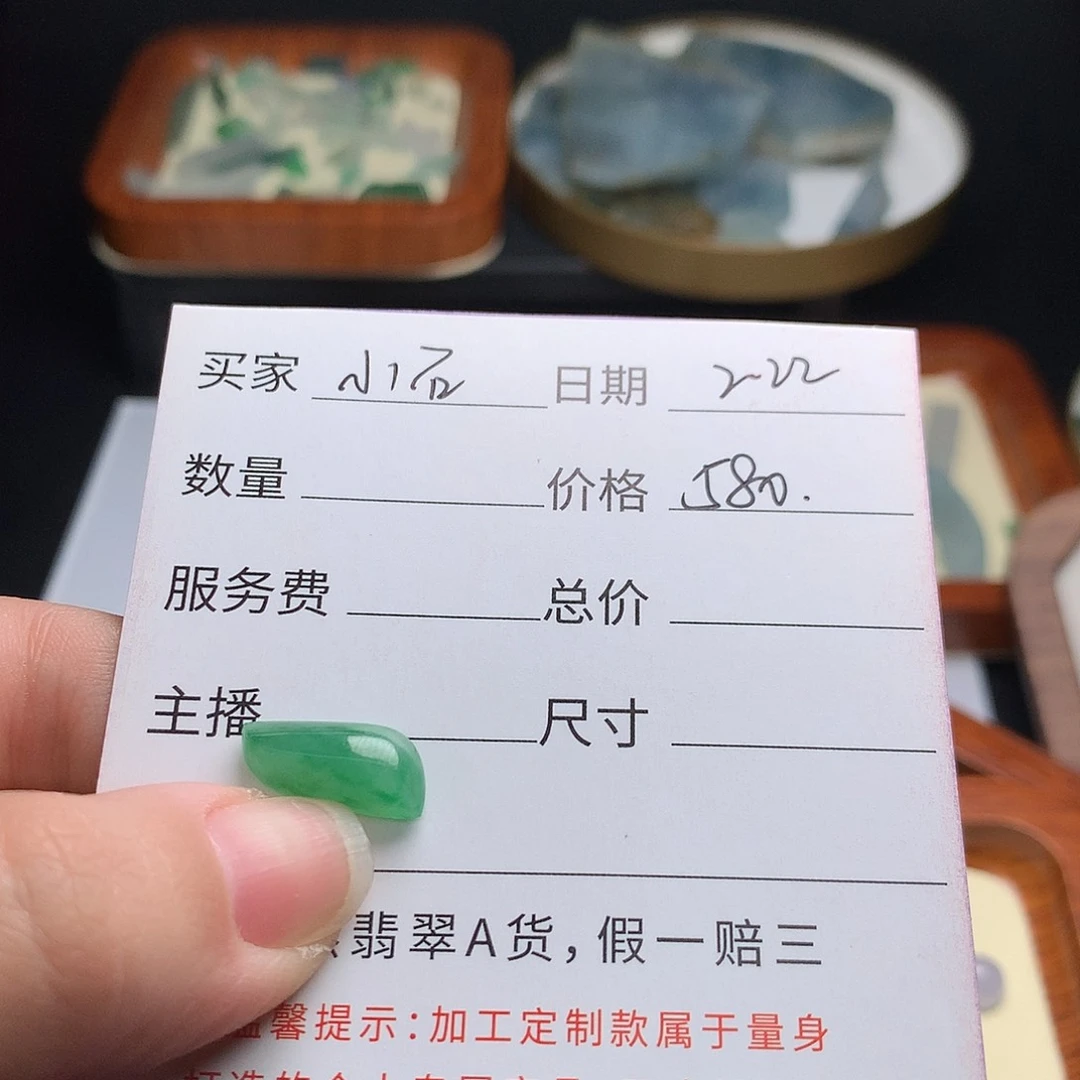 买家 小石 日期 2-22
数量 价格 580.
服务费 总价
主播 尺寸
翡翠A货,假一赔三
温馨提示:加工定制款属于量身